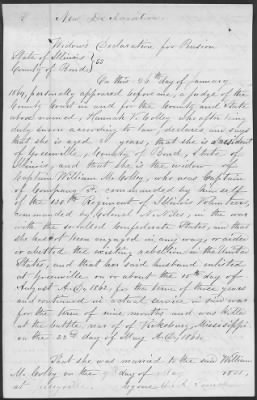 New Declaration
Widow's Declaration for Pension
State of Illinois
County of Bond } SS
On this 26th day of January
1864, personally appeared before me, a judge of the
County Court in and for the County and State
above named, Hannah V. Colby who after being
duly sworn according to law, declares and says
that she is aged years, that she is a resident
of Greenville, County of Bond, State of
Illinois, and that she is the widow of
Captain William M. Colby, who was Captain
of Company F. commanded by himself
of the 130th Regiment of Illinois Volunteers,
commanded by Colonel N. Niles, in the war
with the so called Confederate States, and that
she has not been engaged in any way, or aided
or abetted, the existing rebellion in the United
States, and that her said husband enlisted
at Greenville on or about the 10th day of
August A.D. 1862, for the term of three years
and continued in actual service in said war
for the term of nine months and was killed
at the battle, near of Vicksburg, Mississippi
on the 22nd day of May A.D. 1863.
That she was married to the said William
M. Colby on the day of May
at by one